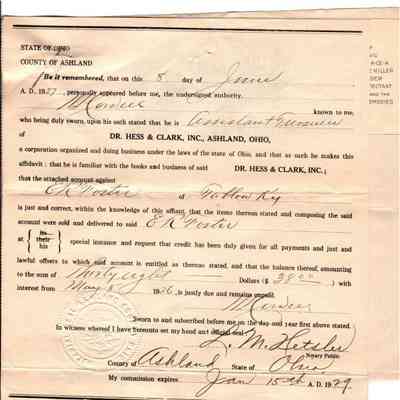 STATE OF OHIO
COUNTY OF ASHLAND
Be it remembered, that on this 8 day of June
A. D. 1927, personally appeared before me, the undersigned authority.
known to me;
who being duly sworn, upon his oath stated that he is Assistant Treasurer
of
DR. HESS & CLARK, INC., ASHLAND, OHIO,
a corporation organized and doing business under the laws of the state of Ohio, and that as such he makes this
affidavit; that he is familiar with the books and business of said DR. HESS & CLARK, INC.;
that the attached account against
E R Foster of Ky
is just and correct, within the knowledge of this affiant, that the items thereon stated and composing the said
account were sold and delivered to said E R Foster
at { its their his } special instance and request that credit has been duly given for all payments and just and
lawful offsets to which said account is entitled as thereon stated, and that the balance thereof, amounting
to the sum of Thirty eight Dollars ($ 38.00 ) with
interest from May 8 1926, is justly due and remains unpaid.
Sworn to and subscribed before me on the day and year first above stated.
In witness whereof I have hereunto set my hand and official seal:
L. M. Hetsler
Notary Public
County of Ashland State of Ohio
My commission expires Jan 15th A. D. 1929
MILLER
AND THE